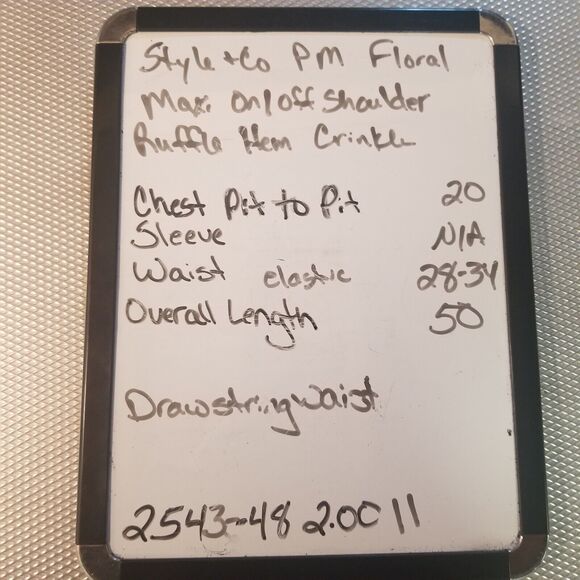 Style + Co PM Floral
Maxi On/off Shoulder
Ruffle Hem Crinkle
Chest Pit to Pit 20
Sleeve N/A
Waist elastic 28-34
Overall Length 50
Drawstring Waist
2543-48 2.00 11